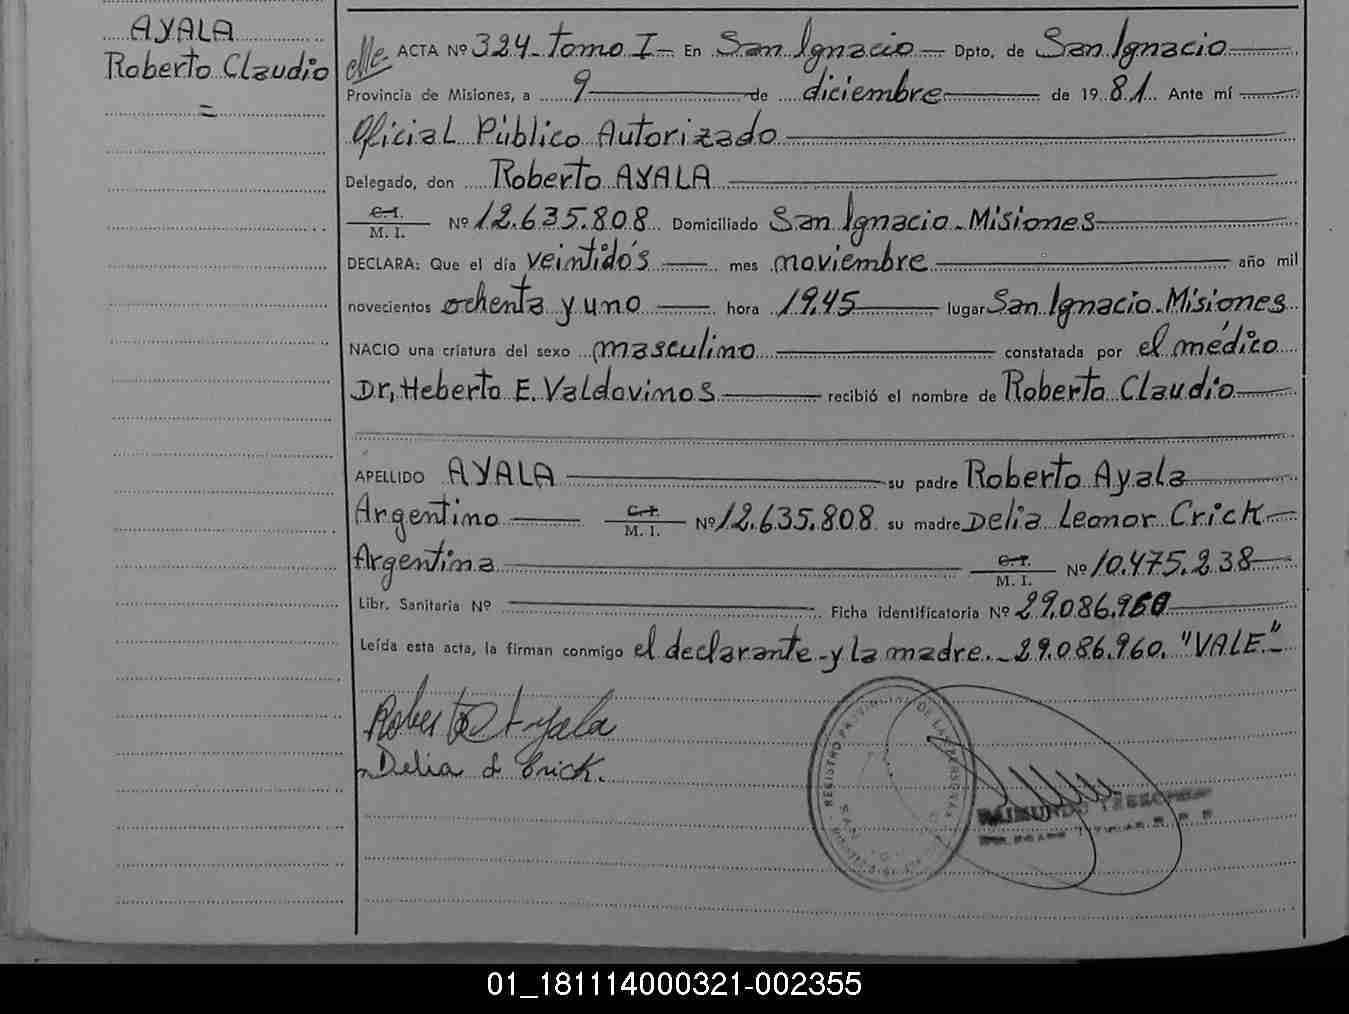 AYALA
Roberto Claudio
=
ACTA Nº 324- Tomo I- En San Ignacio- Dpto, de San Ignacio
Provincia de Misiones, a 9 de diciembre de 1981. Ante mí
Oficial Público Autorizado
Delegado, don Roberto AYALA
C.I.
M. I. Nº 12.635.808 Domiciliado San Ignacio-Misiones
DECLARA: Que el día veintidós mes noviembre año mil
novecientos ochenta y uno hora 19,45 lugar San Ignacio-Misiones
NACIO una criatura del sexo masculino constatada por el médico
Dr, Heberto E. Valdovinos recibió el nombre de Roberto Claudio
APELLIDO AYALA su padre Roberto Ayala
Argentino C.I. M. I. Nº 12.635.808 su madre Delia Leonor Crick
Argentina C.I. M. I. Nº 10.475.238
Libr. Sanitaria Nº Ficha identificatoria Nº 29.086.960
Leída esta acta, la firman conmigo el declarante-y la madre.-29.086.960. "VALE"-
Roberto Ayala
Delia d Crick.
REGISTRO PROVINCIAL DE LAS PERSONAS
SAN
RAIMUNDO
01_181114000321-002355